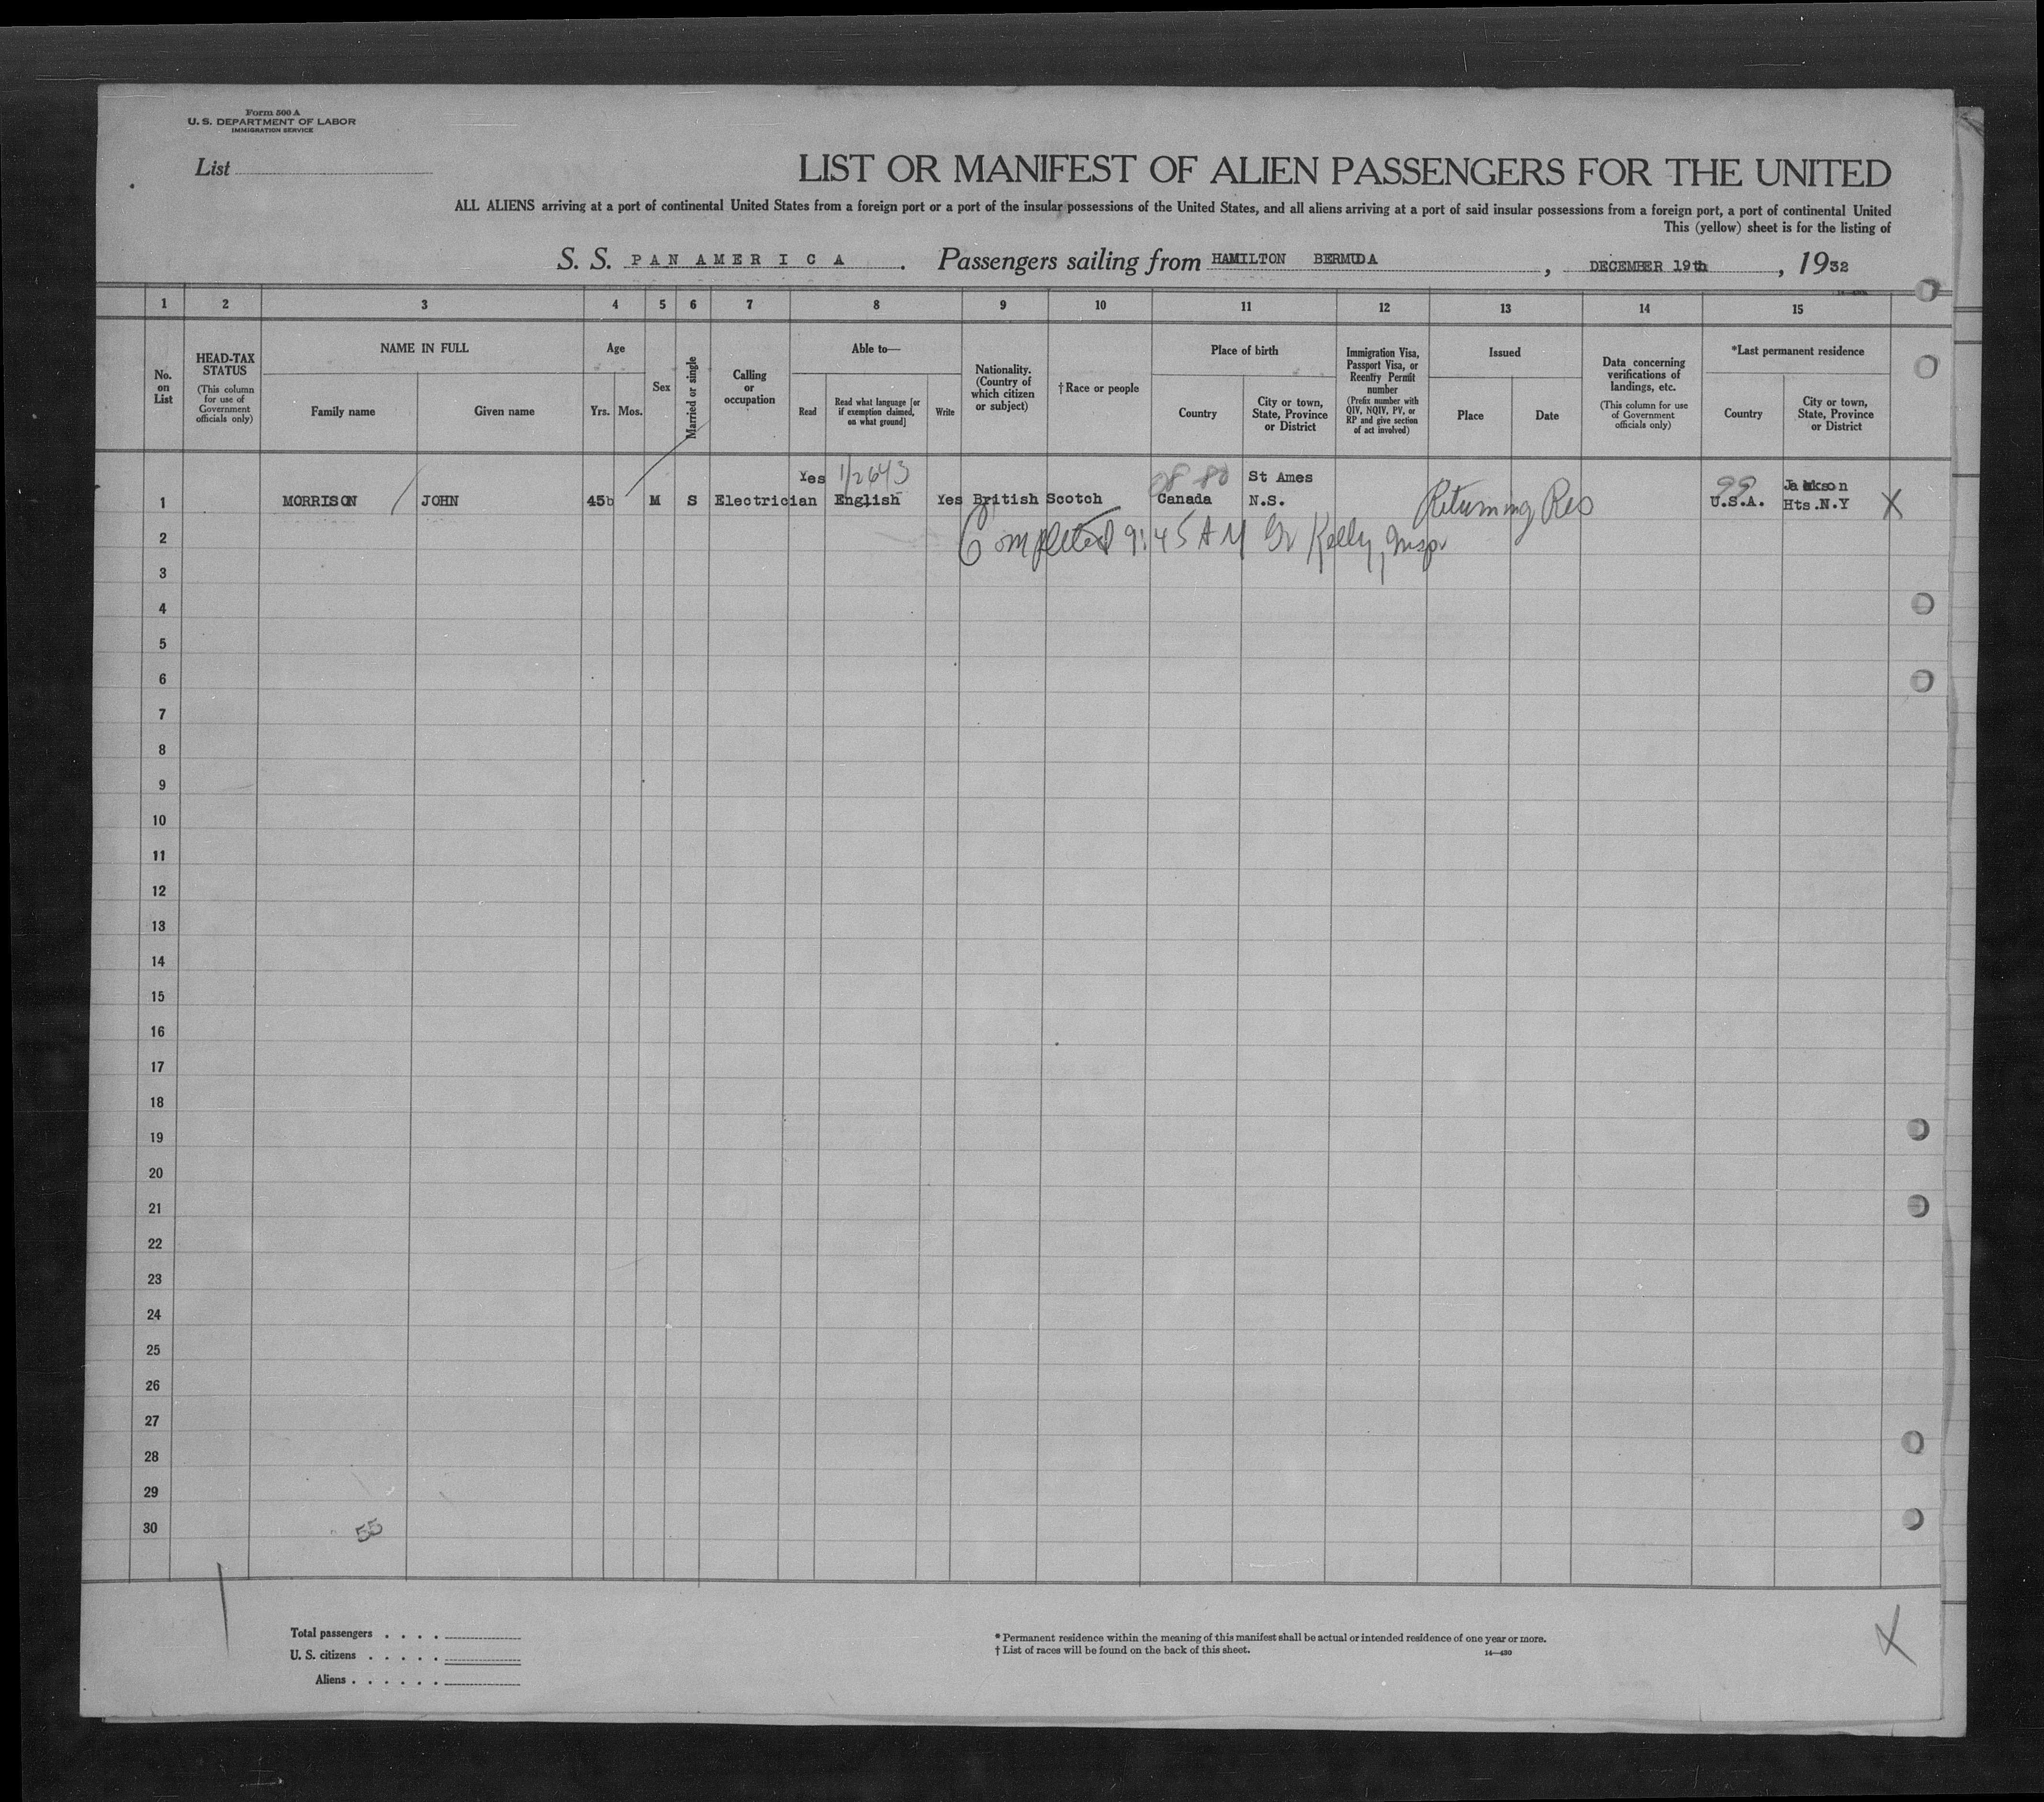 Form 500 A
U. S. DEPARTMENT OF LABOR
IMMIGRATION SERVICE
List
LIST OR MANIFEST OF ALIEN PASSENGERS FOR THE UNITED
ALL ALIENS arriving at a port of continental United States from a foreign port or a port of the insular possessions of the United States, and all aliens arriving at a port of said insular possessions from a foreign port, a port of continental United
This (yellow) sheet is for the listing of
S. S. PAN AMERICA. Passengers sailing from HAMILTON BERMUDA, DECEMBER 19th, 1932
1 2 3 4 5 6 7 8 9 10 11 12 13 14 15
No. on List
HEAD-TAX STATUS
(This column for use of Government officials only)
NAME IN FULL
Family name
Given name
Age
Yrs.
Mos.
Sex
Married or single
Calling or occupation
Able to—
Read
Read what language [or if exemption claimed, on what ground]
Write
Nationality. (Country of which citizen or subject)
†Race or people
Place of birth
Country
City or town, State, Province or District
Immigration Visa, Passport Visa, or Reentry Permit number
(Prefix number with QIV, NQIV, PV, or RP and give section of act involved)
Issued
Place
Date
Data concerning verifications of landings, etc.
(This column for use of Government officials only)
*Last permanent residence
Country
City or town, State, Province or District
Yes 1/2643 St Ames Jackson
1 MORRISON JOHN 45 M S Electrician English Yes British Scotch Canada N.S. Returning Res 99 U.S.A. Hts.N.Y X
2 Completed 9:45 AM Kelly, Inspr
3
4
5
6
7
8
9
10
11
12
13
14
15
16
17
18
19
20
21
22
23
24
25
26
27
28
29
30
55
Total passengers . . . .
U. S. citizens . . . . .
Aliens . . . . . .
* Permanent residence within the meaning of this manifest shall be actual or intended residence of one year or more.
† List of races will be found on the back of this sheet.
14—430
X